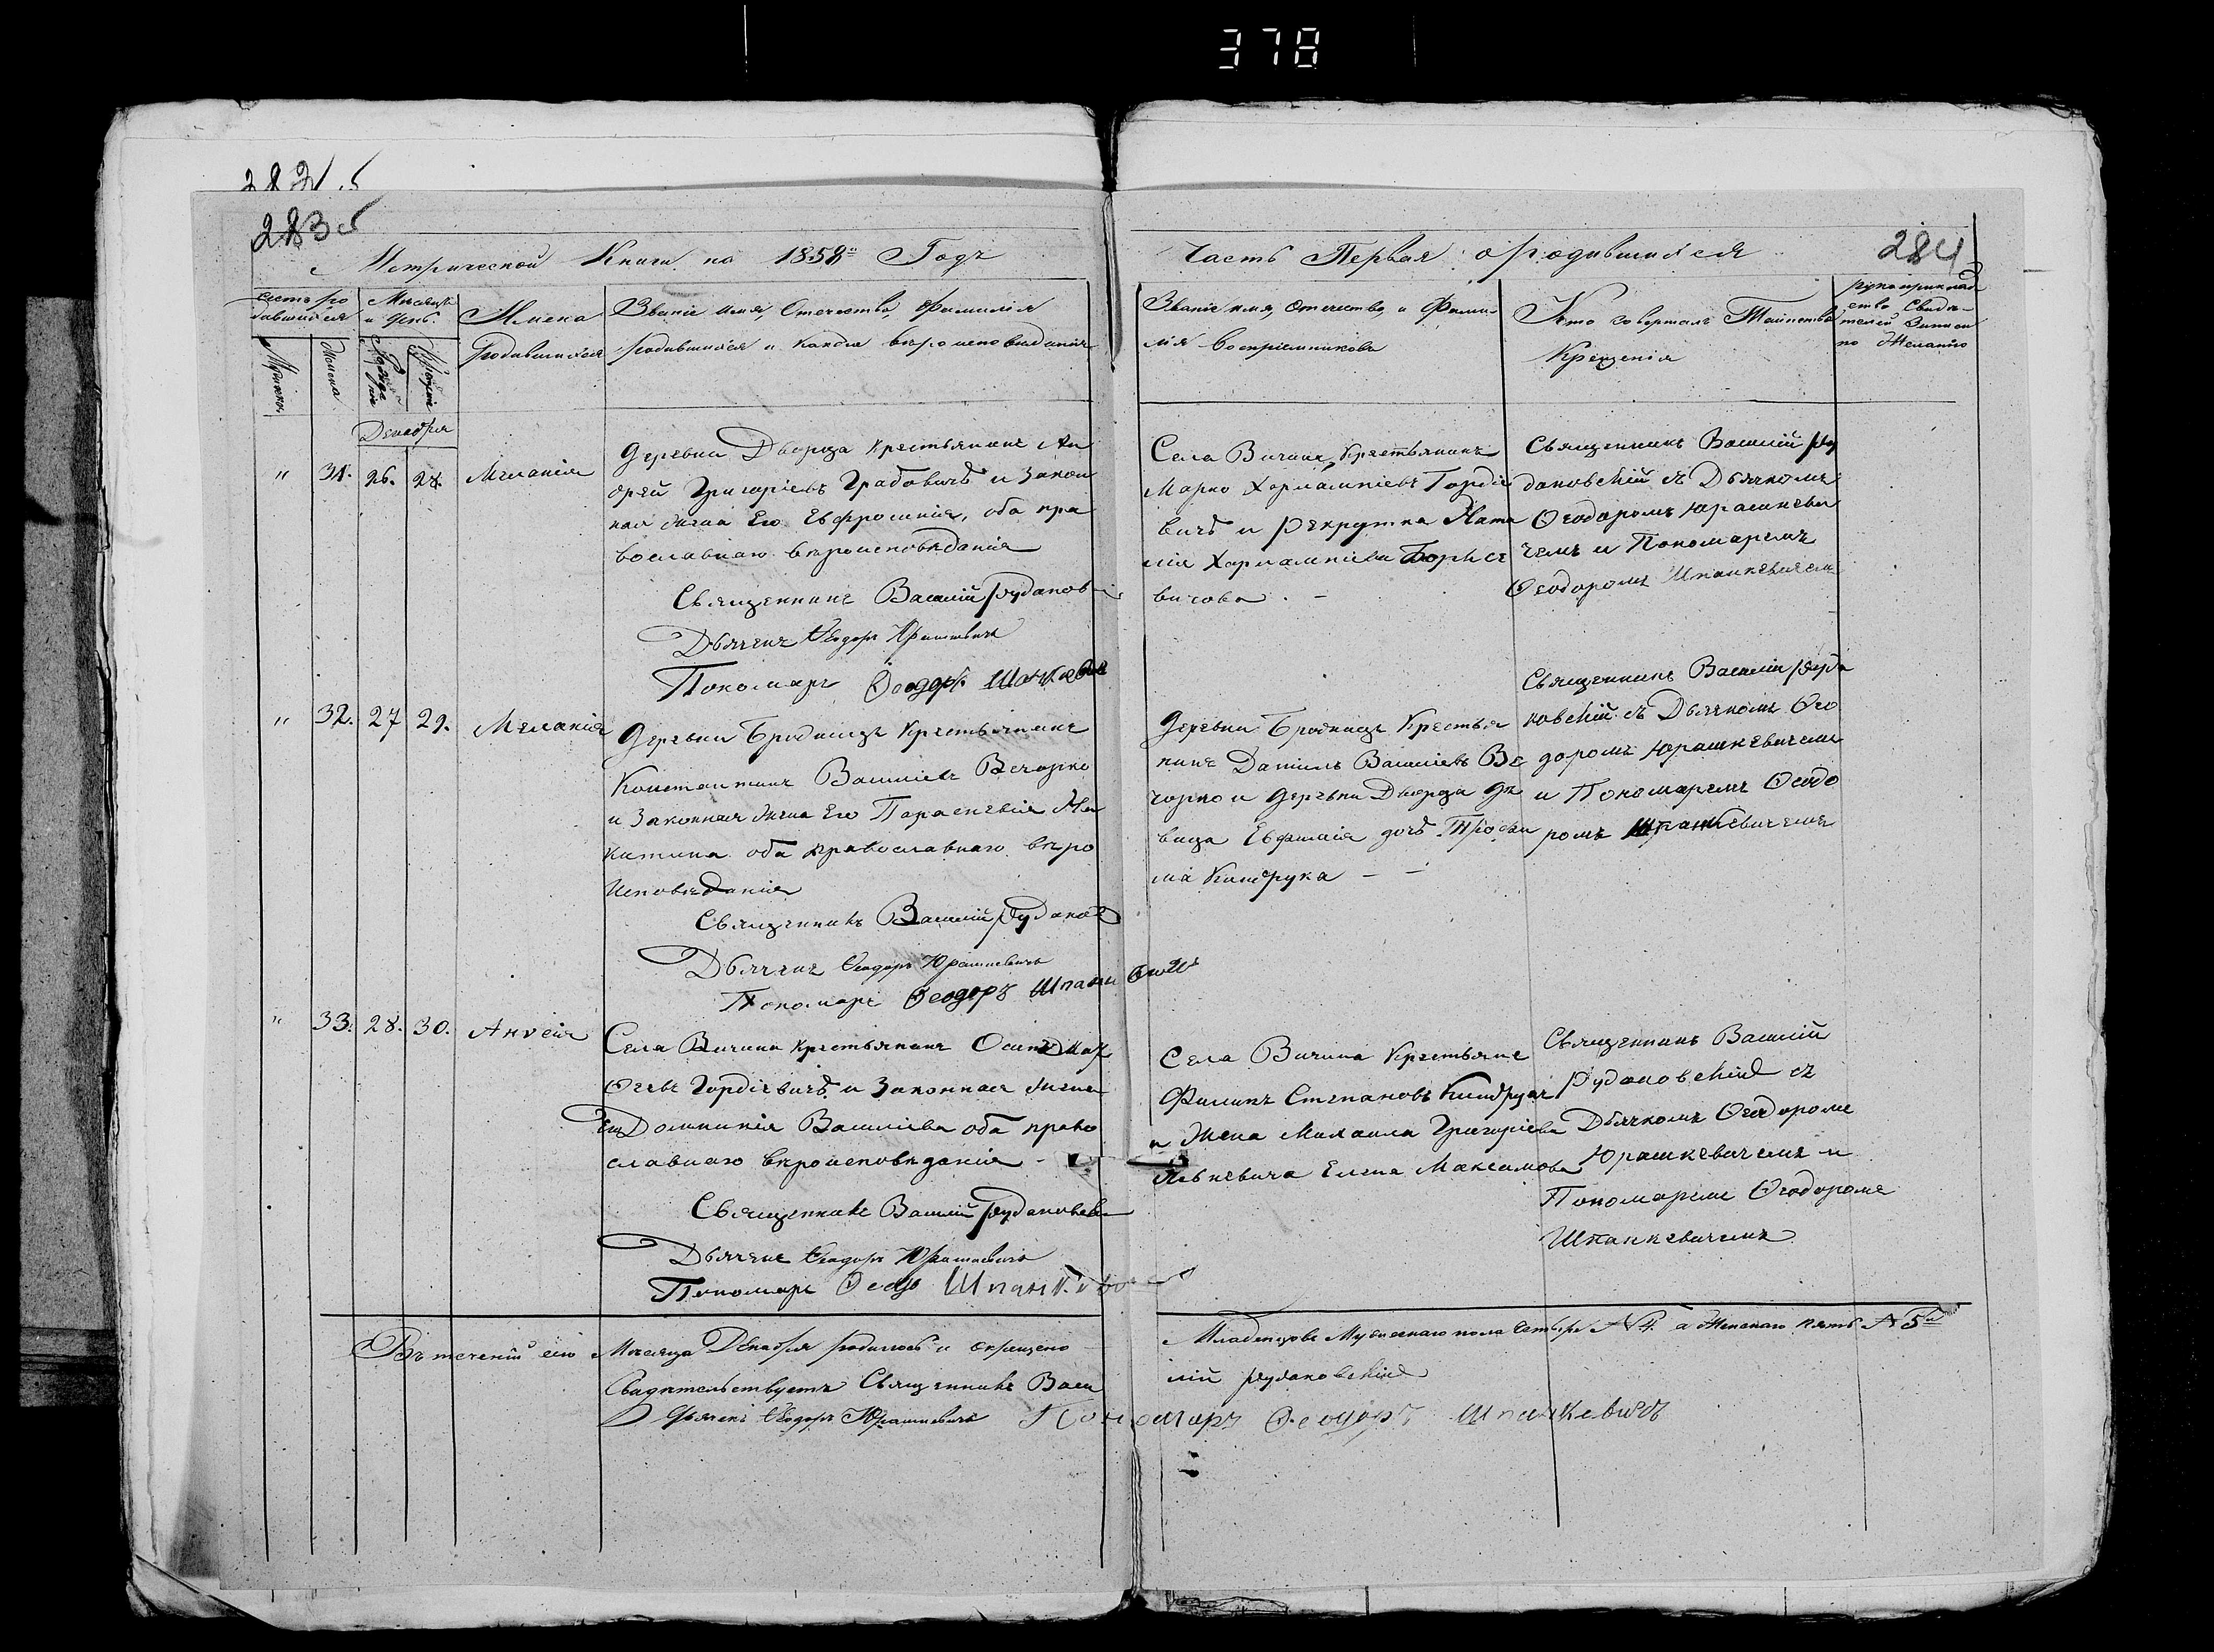 378
283
284
Метрической Книги на 1858й Годъ
Часть Первая о родившихся
Мѣсяцъ и день.
Имена Родившихся
Званіе имя, Отечество, Фамилія
родившихся и какова вѣроисповѣданія
Званіе имя, Отечество, и Фами-
лія Воспріемниковъ
Кто совершалъ Таинство
Крещенія
рукоприклад
ство Свидѣ-
телей Записи
по Желанію
Женска
Декабря
" 31. 26. 28. Меланія
Деревни Дворца Крестьянинъ Ан
дрей Григоріевъ Грабовичъ и Закон
ная жена Его Евфросинія, оба пра
вославнаго вѣроисповѣданія
Священникъ Василій Руданов
Дьячекъ Ѳеодоръ Юрашкевичъ
Пономарь Ѳеодоръ
Села Вичина Крестьянинъ
Марко Харлампіевъ Гордіе
вичъ и рекрутка Ната
лія Харлампіева Борисе
вичова. -
Священникъ Василій Ру
дановскій съ Дьячкомъ
Ѳеодоромъ Юрашкеви
чемъ и Пономаремъ
Ѳеодоромъ Шпанкевичемъ
" 32. 27 29. Меланія
Деревни Бродницъ Крестьянинъ
Константинъ Василіевъ Вечорко
и Законная жена Его Параскевія Ни
китина оба православнаго вѣро
исповѣданія
Священникъ Василій Руданов
Дьячекъ Ѳеодоръ Юрашкевичъ
Пономарь Ѳеодоръ Шпанкевичъ
Деревни Бродницъ Крестья
нинъ Даніилъ Василіевъ Ве
чорко и Деревни Дворца дѣ
вица Евфимія дочь Трофи
ма Киндрука - -
Священникъ Василій Руда
новскій съ Дьячкомъ Ѳео
доромъ Юрашкевичемъ
и Пономаремъ Ѳеодо
ромъ Шпанкевичемъ
" 33. 28. 30. Анѵсія
Села Вичина Крестьянинъ Осипъ
Гордіевичъ и Законная жена
Его Домникія Василіева оба право
славнаго вѣроисповѣданія -
Священникъ Василій Рудановскій
Дьячекъ Ѳеодоръ Юрашкевичъ
Пономарь Ѳеодо Шпанкево
Села Вичина Крестьяне
Филипъ Степановъ Киндрукъ
и Жена Михаила Григоріева
Елена Максимова
Священникъ Василій
Рудановскій съ
Дьячкомъ Ѳеодоромъ
Юрашкевичемъ и
Пономаремъ Ѳеодоромъ
Шпанкевичемъ
Въ теченіи сего Мѣсяца Декабря родилось и окрещено
Младенцовъ Мужескаго пола четыре № 4. а Женскаго пять № 5й
Свидѣтельствуетъ Священникъ Васи
лій Рудановскій
Дьячекъ Ѳеодоръ Юрашкевичъ Пономарь Ѳеодоръ Шпанкевичъ